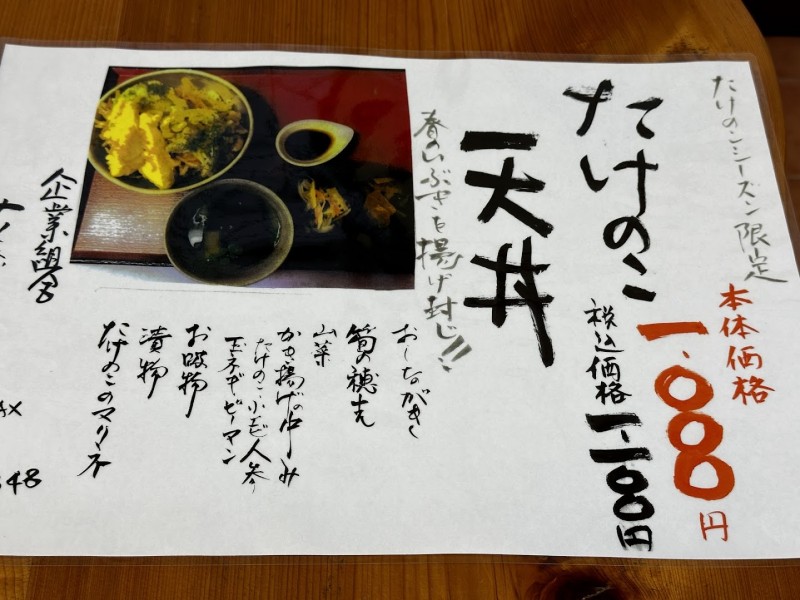 たけのこシーズン限定
たけのこ
天丼
本体価格
一、〇〇〇円
税込価格
一、一〇〇円
春のいぶきを揚げ封じ!!
おしながき
筍の穂先
山菜
かき揚げの中み
たけのこ・小エビ・人参
玉ネギ・ピーマン
お吸物
漬物
たけのこのマリネ
企業組合